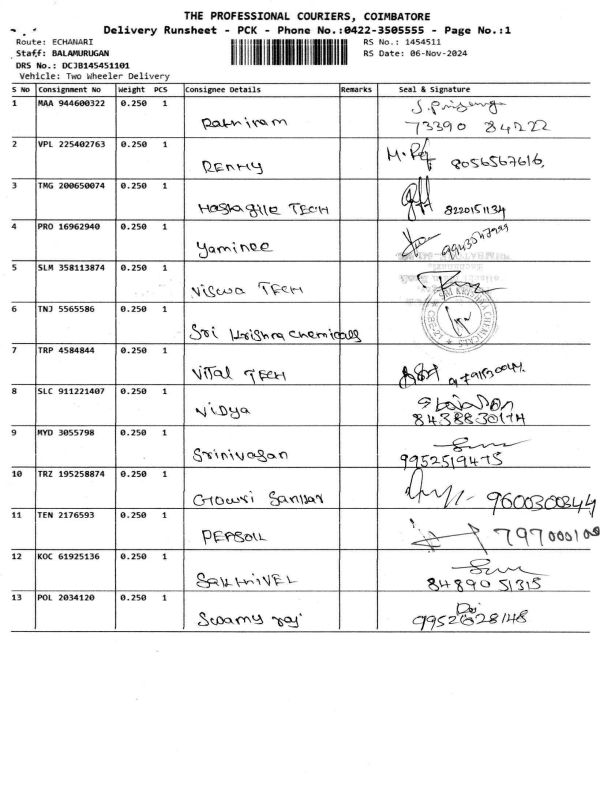 THE PROFESSIONAL COURIERS, COIMBATORE
Delivery Runsheet - PCK - Phone No.:0422-3505555 - Page No.:1
Route: ECHANARI RS No.: 1454511
Staff: BALAMURUGAN RS Date: 06-Nov-2024
DRS No.: DCJB145451101
Vehicle: Two Wheeler Delivery
S No Consignment No Weight PCS Consignee Details Remarks Seal & Signature
1 MAA 944600322 0.250 1 Rathiram
73390 84222
2 VPL 225402763 0.250 1 REMMY 8056567616
3 TMG 200650074 0.250 1 TECH 8220151134
4 PRO 16962940 0.250 1 Yaminee
5 SLM 358113874 0.250 1 Viswa TECH
6 TNJ 5565586 0.250 1 Sri Krishna Chemicals
SRI KRISHNA CHEMICALS
7 TRP 4584844 0.250 1 Vital TECH
8 SLC 911221407 0.250 1 Vidya
9 MYD 3055798 0.250 1 Srinivasan
9952519475
10 TRZ 195258874 0.250 1 Gowri Sankar 9600300344
11 TEN 2176593 0.250 1 PEPSOIL
12 KOC 61925136 0.250 1 SAKTHIVEL
84890 51315
13 POL 2034120 0.250 1 Swamy raj